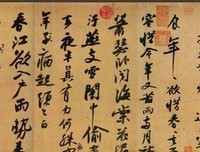 食年々欲惜春々去
容惜今年又苦雨兩月
蕭瑟臥聞海棠花
汙燕支雪闇中偷
夜半真有力何殊
年病起頭已白
春江欲入戶雨勢來